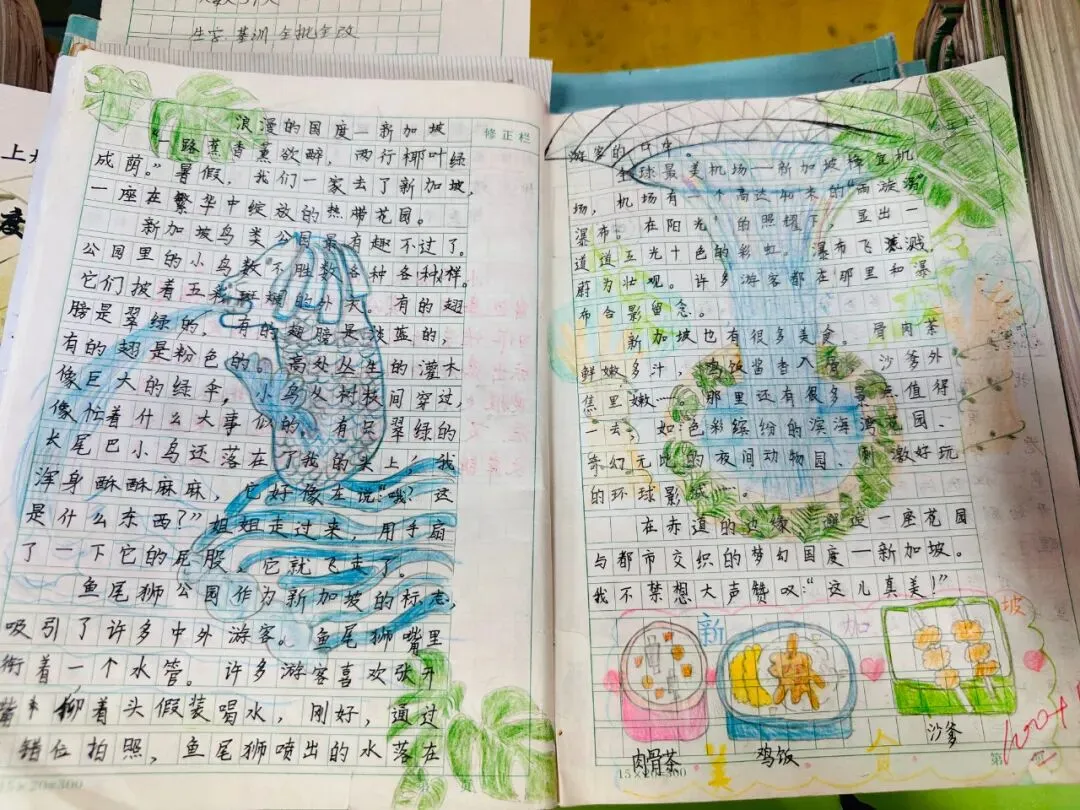 生字 基训 全批全改
修正栏
浪漫的国度—新加坡
一路蕉香熏欲醉,两行椰叶绿
成荫。”暑假,我们一家去了新加坡,
一座在繁华中绽放的热带花园。
新加坡鸟类公园最有趣不过了。
公园里的小鸟数不胜数各种各样。
它们披着五彩斑斓的外衣。有的翅
膀是翠绿的,有的翅膀是淡蓝的,
有的翅是粉色的。高处丛生的灌木
像巨大的绿伞,小鸟从树枝间穿过,
像忙着什么大事似的,有只翠绿的
长尾巴小鸟还落在了我的头上!我
浑身酥酥麻麻,它好像在说:“哦?这
是什么东西?”姐姐走过来,用手扇
了一下它的屁股,它就飞走了。
鱼尾狮公园作为新加坡的标志,
吸引了许多中外游客。鱼尾狮嘴里
衔着一个水管。许多游客喜欢张开
嘴仰着头假装喝水,刚好,通过
错位拍照,鱼尾狮喷出的水落在
15×20=300
页
游客的口中。
全球最美机场—新加坡樟宜机
场,机场有一个高达40米的“雨漩涡”
瀑布。在阳光的照耀下,显出一
道道五光十色的彩虹。瀑布飞溅,
蔚为壮观。许多游客都在那里和瀑
布合影留念。
新加坡也有很多美食。骨肉茶
鲜嫩多汁,鸡饭酱香入,沙爹外
焦里嫩……。那里还有很多景点值得
一去,如:色彩缤纷的滨海湾花园、
奇幻无比的夜间动物园、刺激好玩
的环球影城…。
在赤道的边缘,一座花园
与都市交织的梦幻国度—新加坡。
我不禁想大声赞叹:“这儿真美!”
新加坡
肉骨茶
鸡饭
沙爹
美食
15×20=300
第 页
100+